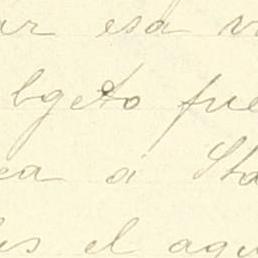 ar esa v
bgeto fue
ea á Sta
es el agu